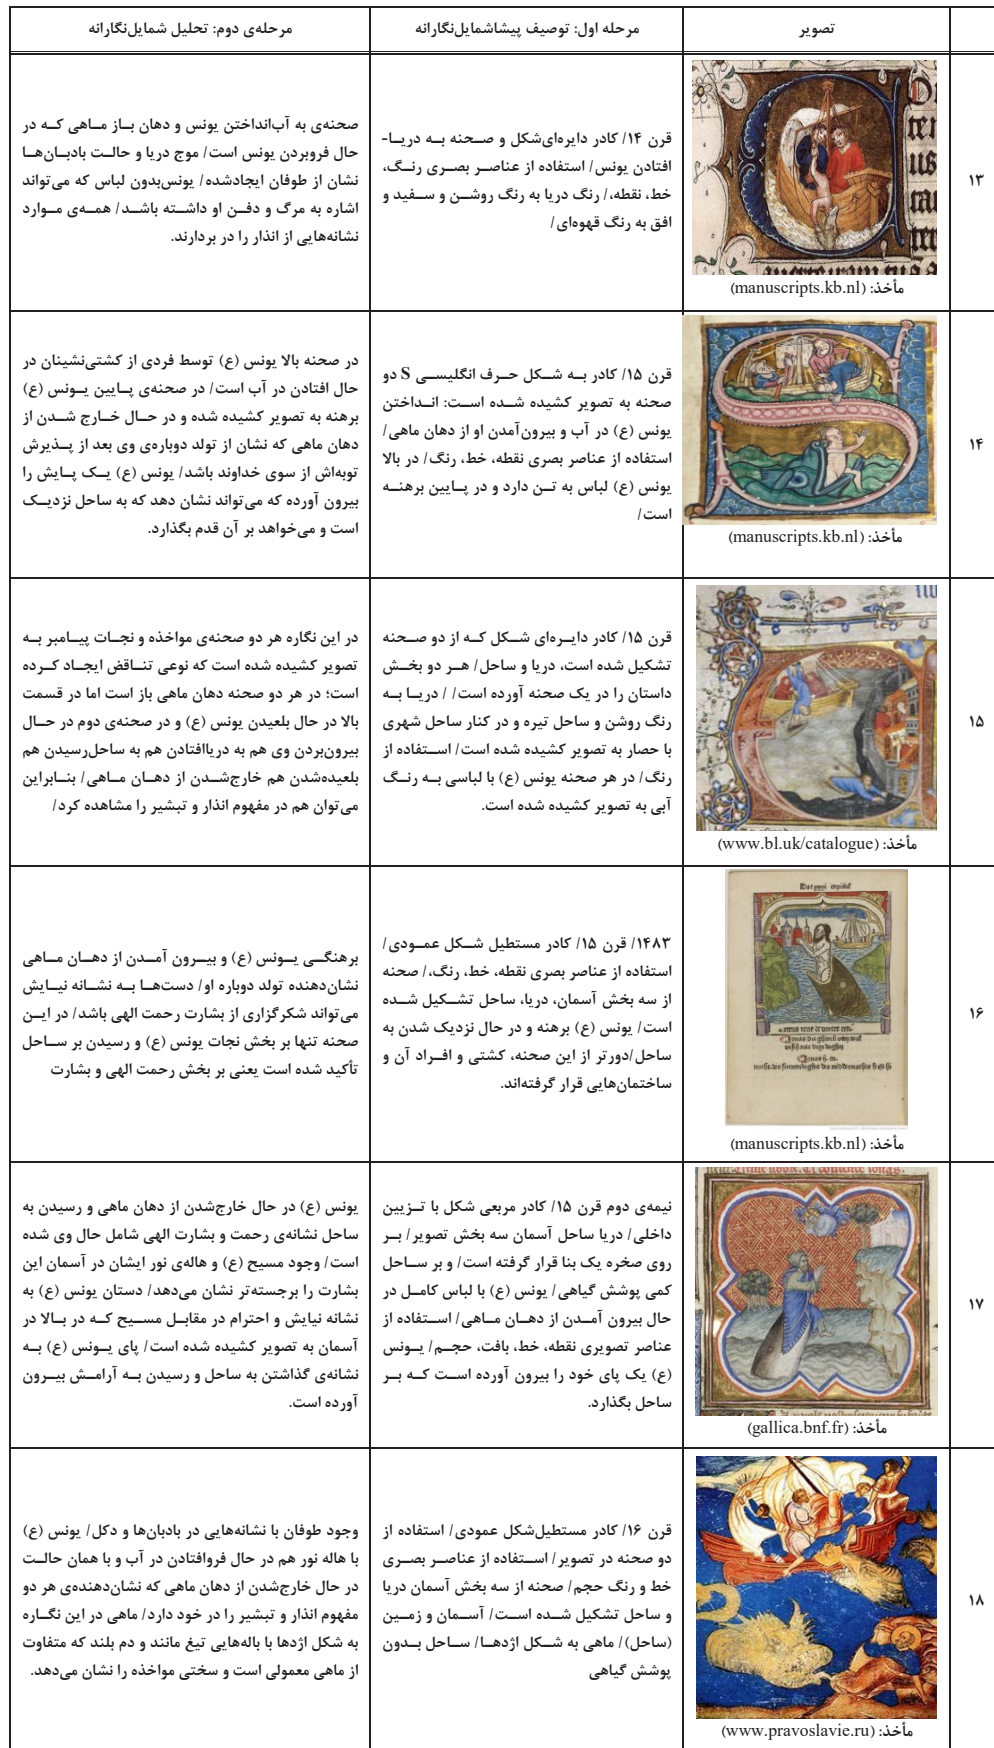 تصویر
مرحله اول: توصیف پیشاشمایل‌نگارانه
مرحله‌ی دوم: تحلیل شمایل‌نگارانه
۱۳
مأخذ: (manuscripts.kb.nl)
قرن ۱۴/ کادر دایره‌ای‌شکل و صحنه به دریا-
افتادن یونس/ استفاده از عناصر بصری رنگ،
خط، نقطه،/ رنگ دریا به رنگ روشن و سفید و
افق به رنگ قهوه‌ای/
صحنه‌ی به آب‌انداختن یونس و دهان باز ماهی که در
حال فروبردن یونس است/ موج دریا و حالت بادبان‌ها
نشان از طوفان ایجادشده/ یونس‌بدون لباس که می‌تواند
اشاره به مرگ و دفن او داشته باشد/ همه‌ی موارد
نشانه‌هایی از انذار را در بردارند.
۱۴
مأخذ: (manuscripts.kb.nl)
قرن ۱۵/ کادر به شکل حرف انگلیسی S دو
صحنه به تصویر کشیده شده است: انداختن
یونس (ع) در آب و بیرون‌آمدن او از دهان ماهی/
استفاده از عناصر بصری نقطه، خط، رنگ/ در بالا
یونس (ع) لباس به تن دارد و در پایین برهنه
است/
در صحنه بالا یونس (ع) توسط فردی از کشتی‌نشینان در
حال افتادن در آب است/ در صحنه‌ی پایین یونس (ع)
برهنه به تصویر کشیده شده و در حال خارج شدن از
دهان ماهی که نشان از تولد دوباره‌ی وی بعد از پذیرش
توبه‌اش از سوی خداوند باشد/ یونس (ع) یک پایش را
بیرون آورده که می‌تواند نشان دهد که به ساحل نزدیک
است و می‌خواهد بر آن قدم بگذارد.
۱۵
مأخذ: (www.bl.uk/catalogue)
قرن ۱۵/ کادر دایره‌ای شکل که از دو صحنه
تشکیل شده است، دریا و ساحل/ هر دو بخش
داستان را در یک صحنه آورده است/ / دریا به
رنگ روشن و ساحل تیره و در کنار ساحل شهری
با حصار به تصویر کشیده شده است/ استفاده از
رنگ/ در هر صحنه یونس (ع) با لباسی به رنگ
آبی به تصویر کشیده شده است.
در این نگاره هر دو صحنه‌ی مواخذه و نجات پیامبر به
تصویر کشیده شده است که نوعی تناقض ایجاد کرده
است؛ در هر دو صحنه دهان ماهی باز است اما در قسمت
بالا در حال بلعیدن یونس (ع) و در صحنه‌ی دوم در حال
بیرون‌بردن وی هم به دریاافتادن هم به ساحل‌رسیدن هم
بلعیده‌شدن هم خارج‌شدن از دهان ماهی/ بنابراین
می‌توان هم در مفهوم انذار و تبشیر را مشاهده کرد/
۱۶
مأخذ: (manuscripts.kb.nl)
۱۴۸۳/ قرن ۱۵/ کادر مستطیل شکل عمودی/
استفاده از عناصر بصری نقطه، خط، رنگ،/ صحنه
از سه بخش آسمان، دریا، ساحل تشکیل شده
است/ یونس (ع) برهنه و در حال نزدیک شدن به
ساحل/دورتر از این صحنه، کشتی و افراد آن و
ساختمان‌هایی قرار گرفته‌اند.
برهنگی یونس (ع) و بیرون آمدن از دهان ماهی
نشان‌دهنده تولد دوباره او/ دست‌ها به نشانه نیایش
می‌تواند شکرگزاری از بشارت رحمت الهی باشد/ در این
صحنه تنها بر بخش نجات یونس (ع) و رسیدن بر ساحل
تأکید شده است یعنی بر بخش رحمت الهی و بشارت
۱۷
مأخذ: (gallica.bnf.fr)
نیمه‌ی دوم قرن ۱۵/ کادر مربعی شکل با تزیین
داخلی/ دریا ساحل آسمان سه بخش تصویر/ بر
روی صخره یک بنا قرار گرفته است/ و بر ساحل
کمی پوشش گیاهی/ یونس (ع) با لباس کامل در
حال بیرون آمدن از دهان ماهی/ استفاده از
عناصر تصویری نقطه، خط، بافت، حجم/ یونس
(ع) یک پای خود را بیرون آورده است که بر
ساحل بگذارد.
یونس (ع) در حال خارج‌شدن از دهان ماهی و رسیدن به
ساحل نشانه‌ی رحمت و بشارت الهی شامل حال وی شده
است/ وجود مسیح (ع) و هاله‌ی نور ایشان در آسمان این
بشارت را برجسته‌تر نشان می‌دهد/ دستان یونس (ع) به
نشانه نیایش و احترام در مقابل مسیح که در بالا در
آسمان به تصویر کشیده شده است/ پای یونس (ع) به
نشانه‌ی گذاشتن به ساحل و رسیدن به آرامش بیرون
آورده است.
۱۸
مأخذ: (www.pravoslavie.ru)
قرن ۱۶/ کادر مستطیل‌شکل عمودی/ استفاده از
دو صحنه در تصویر/ استفاده از عناصر بصری
خط و رنگ حجم/ صحنه از سه بخش آسمان دریا
و ساحل تشکیل شده است/ آسمان و زمین
(ساحل)/ ماهی به شکل اژدها/ ساحل بدون
پوشش گیاهی
وجود طوفان با نشانه‌هایی در بادبان‌ها و دکل/ یونس (ع)
با هاله نور هم در حال فروافتادن در آب و با همان حالت
در حال خارج‌شدن از دهان ماهی که نشان‌دهنده‌ی هر دو
مفهوم انذار و تبشیر را در خود دارد/ ماهی در این نگاره
به شکل اژدها با باله‌هایی تیغ مانند و دم بلند که متفاوت
از ماهی معمولی است و سختی مواخذه را نشان می‌دهد.